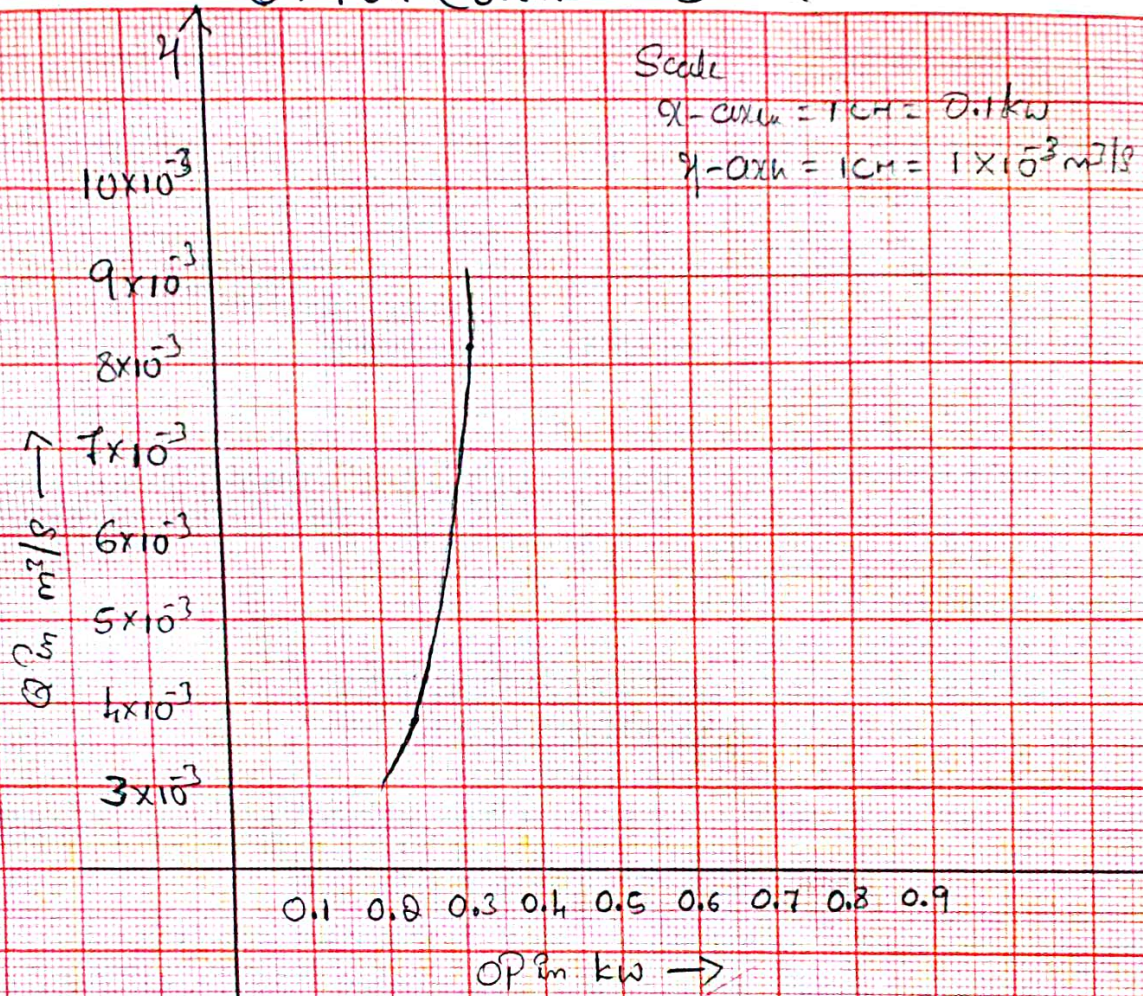 y
Scale
x-axis = 1cm = 0.1kw
y-axis = 1cm = 1×10⁻³m³/s
10×10⁻³
9×10⁻³
8×10⁻³
7×10⁻³
6×10⁻³
5×10⁻³
4×10⁻³
3×10⁻³
Q in m³/s →
0.1 0.2 0.3 0.4 0.5 0.6 0.7 0.8 0.9
OP in kw →